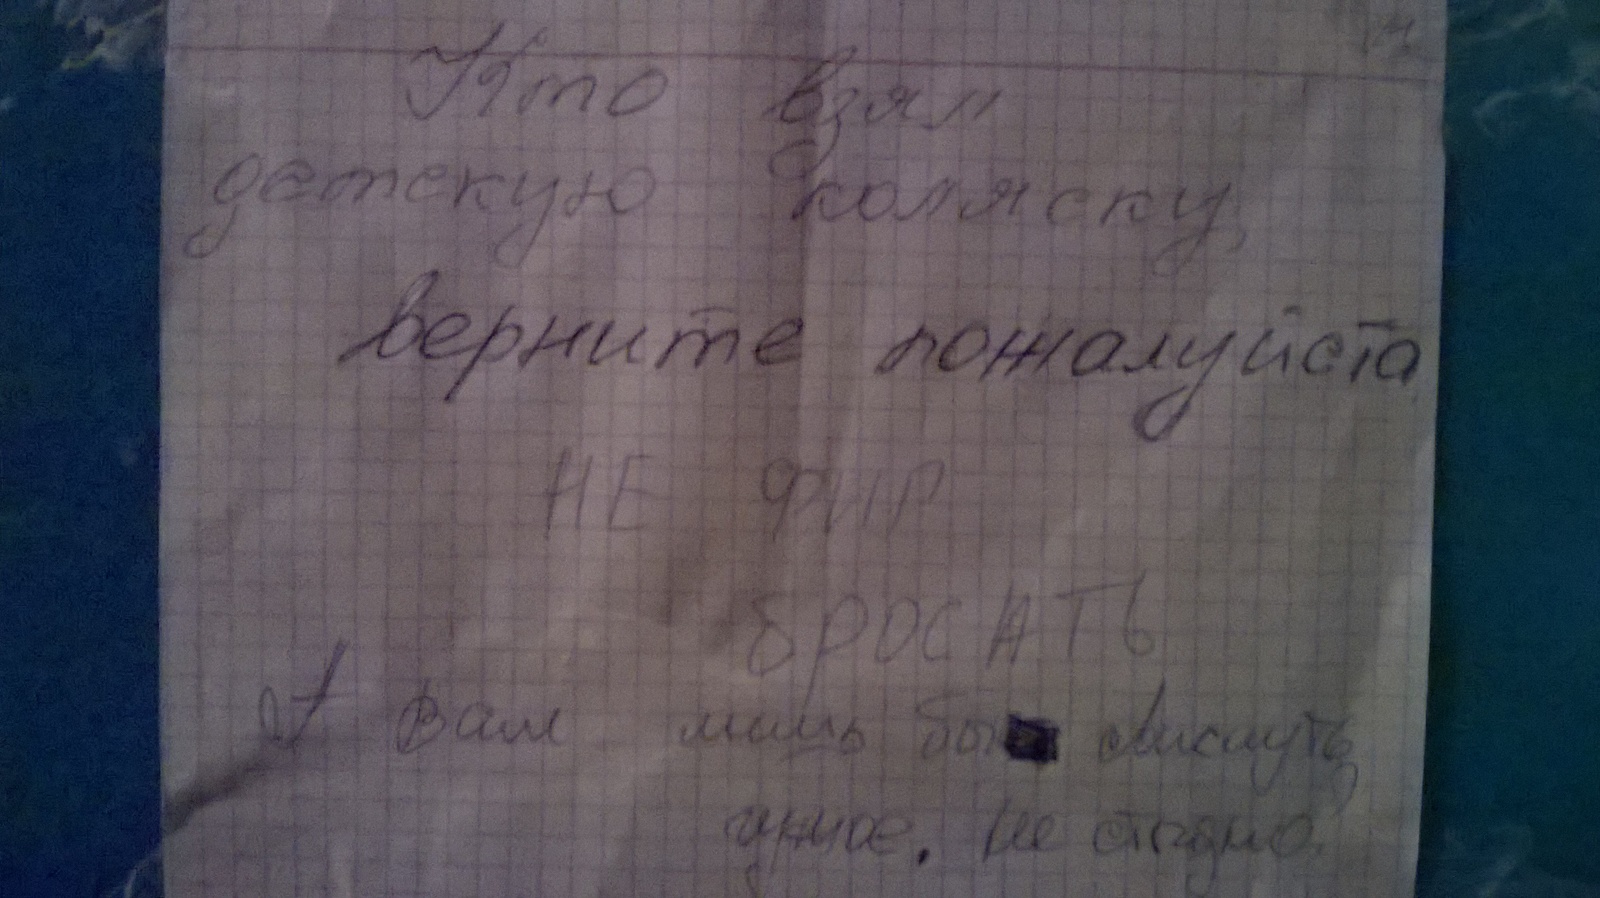 Кто взял
детскую коляску,
верните пожалуйста
НЕ ФИР
БРОСАТЬ
А Вам лишь бы
чужое. Не стыдно.